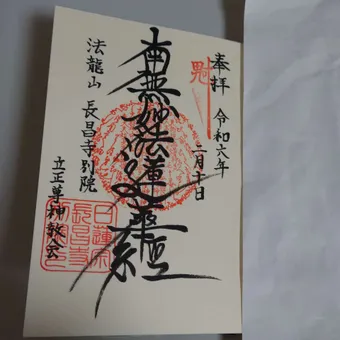 奉拝
令和六年
一月十日
南無妙法蓮華経
法龍山
長昌寺別院
立正尊神教会
日蓮宗
長昌寺